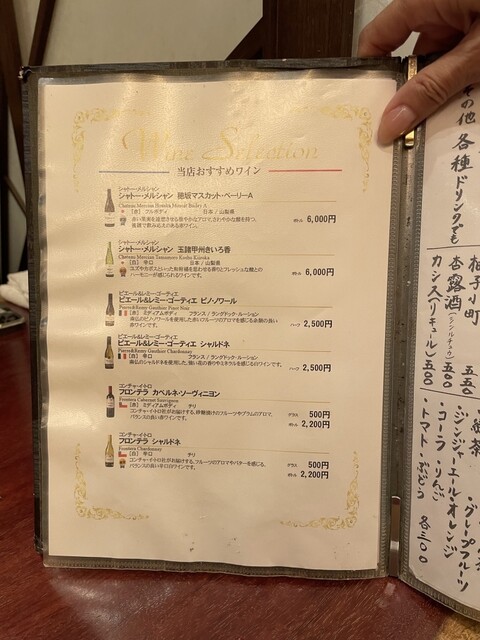 Wine Selection
当店おすすめワイン
シャトー・メルシャン
シャトー・メルシャン 穂坂マスカット・ベーリーA
【赤】 フルボディ 日本 / 山梨県
ボトル 6,000円
シャトー・メルシャン
シャトー・メルシャン 玉諸甲州きいろ香
Chateau Mercian Tamamoro Koshu Kiiroka
【白】 辛口 日本 / 山梨県
ユズやカボスといった和柑橘を思わせる香りとフレッシュな酸との
ハーモニーが感じられるワインです。
ボトル 6,000円
ピエール&レミー・ゴーティエ
ピエール&レミー・ゴーティエ ピノ・ノワール
Pierre&Remy Gauthier Pinot Noir
【赤】 ミディアムボディ フランス / ラングドック・ルーション
ハーフ 2,500円
ピエール&レミー・ゴーティエ
ピエール&レミー・ゴーティエ シャルドネ
Pierre&Remy Gauthier Chardonnay
【白】 辛口 フランス / ラングドック・ルーション
ハーフ 2,500円
コンチャ・イ・トロ
フロンテラ カベルネ・ソーヴィニヨン
Frontera Cabernet Sauvignon
【赤】 ミディアムボディ チリ
バランスの良い赤ワインです。
グラス 500円
ボトル 2,200円
コンチャ・イ・トロ
フロンテラ シャルドネ
Frontera Chardonnay
【白】 辛口 チリ
バランスの良い辛口白ワインです。
グラス 500円
ボトル 2,200円
その他 各種ドリンクでも
柚子小町 五五〇
杏露酒(シンルチュウ) 五〇〇
カシス(リキュール) 五〇〇
・紅茶
・グレープフルーツ
・ジンジャーエール・オレンジ
・コーラ・りんご
・トマト・ぶどう 各三〇〇